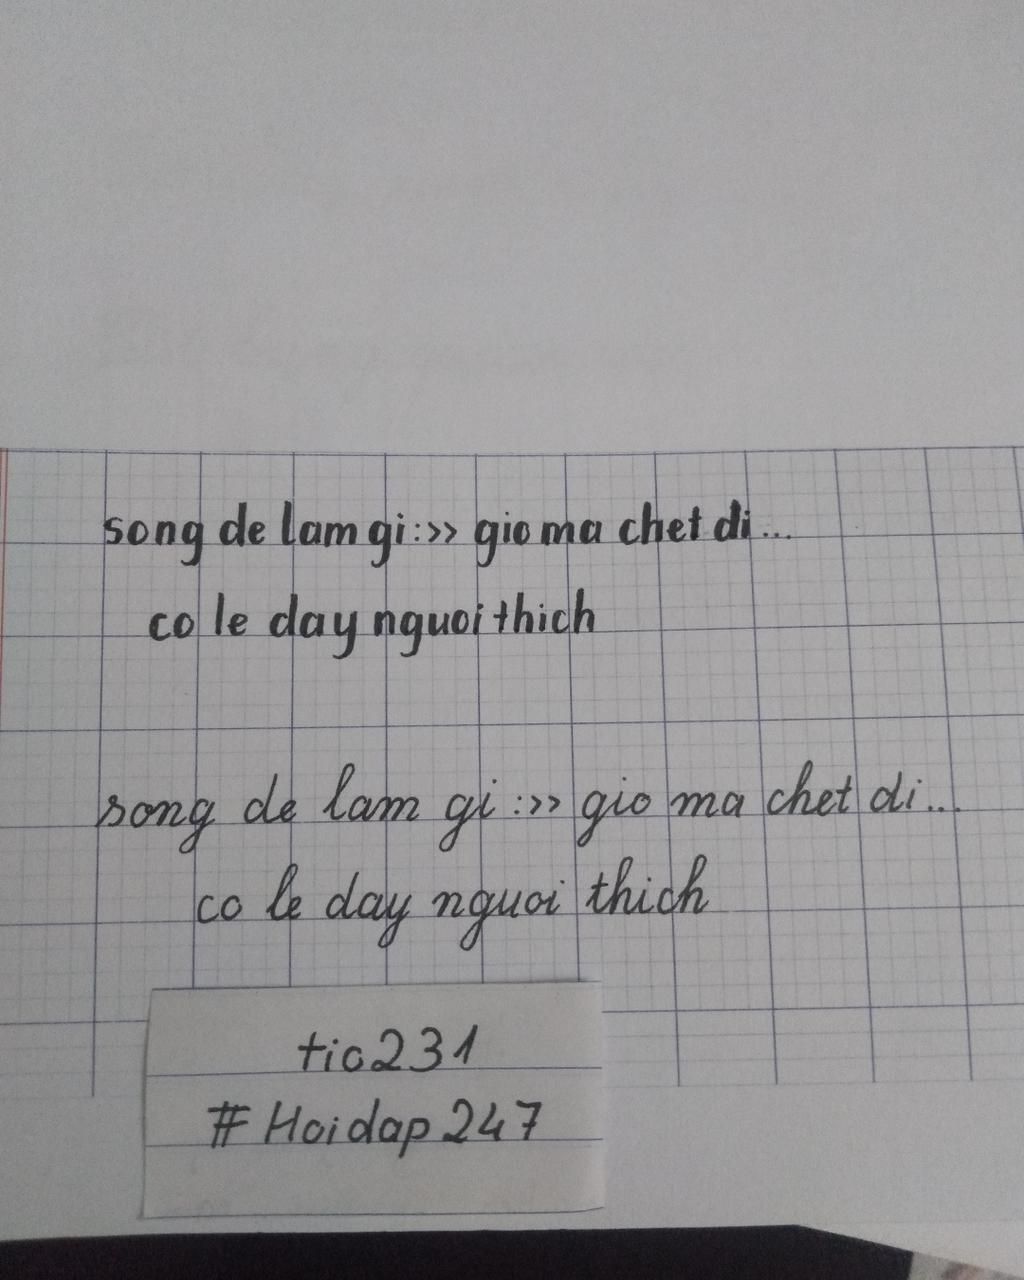 song de lam gi:>> gio ma chet di...
co le day nguoi thich
song de lam gi:>> gio ma chet di...
co le day nguoi thich
tio231
#Hoidap247